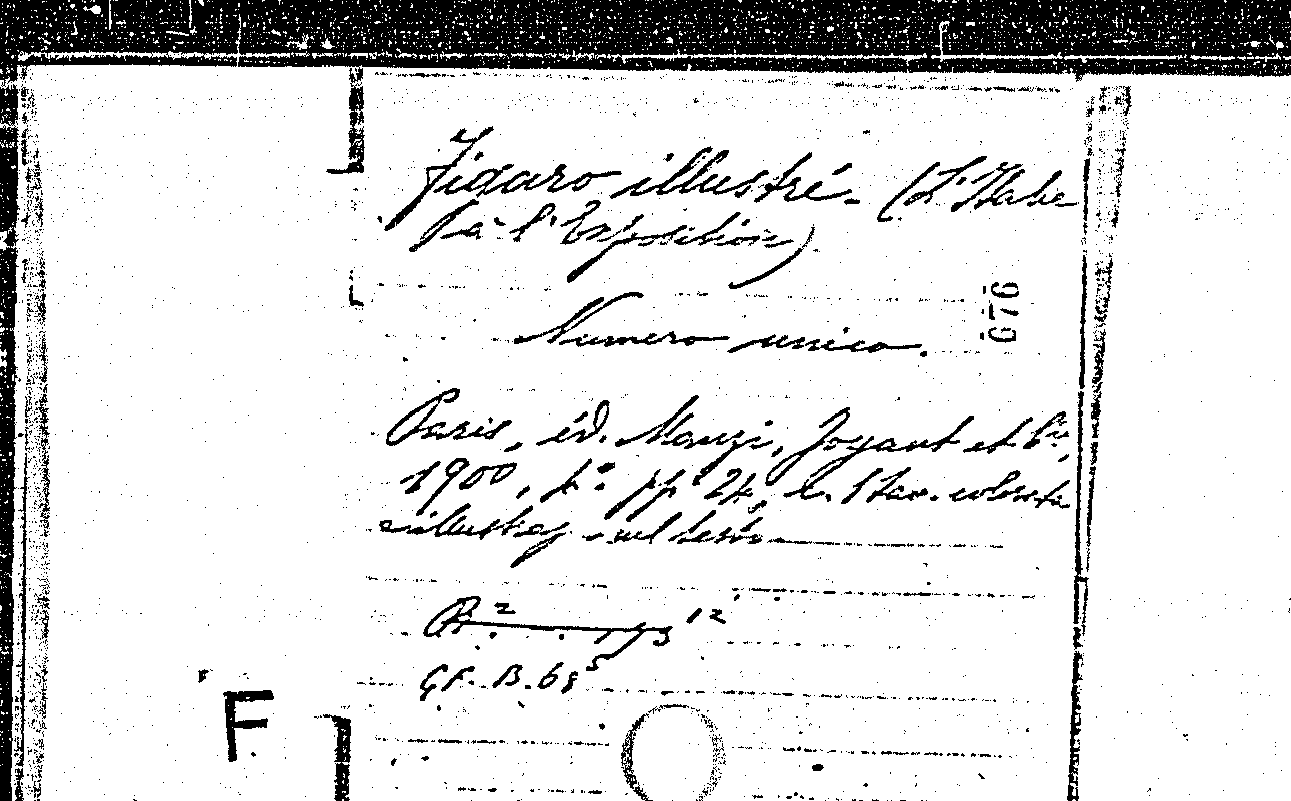 Figaro illustré. (L'Italie
à l'Exposition)
Numero unico.
Paris, éd. Manzi, Joyant et Cie,
1900, f.° pp 24, c. 1 tav. colorata
e illustraz. nel testo
076
GF. B. 68 5
F